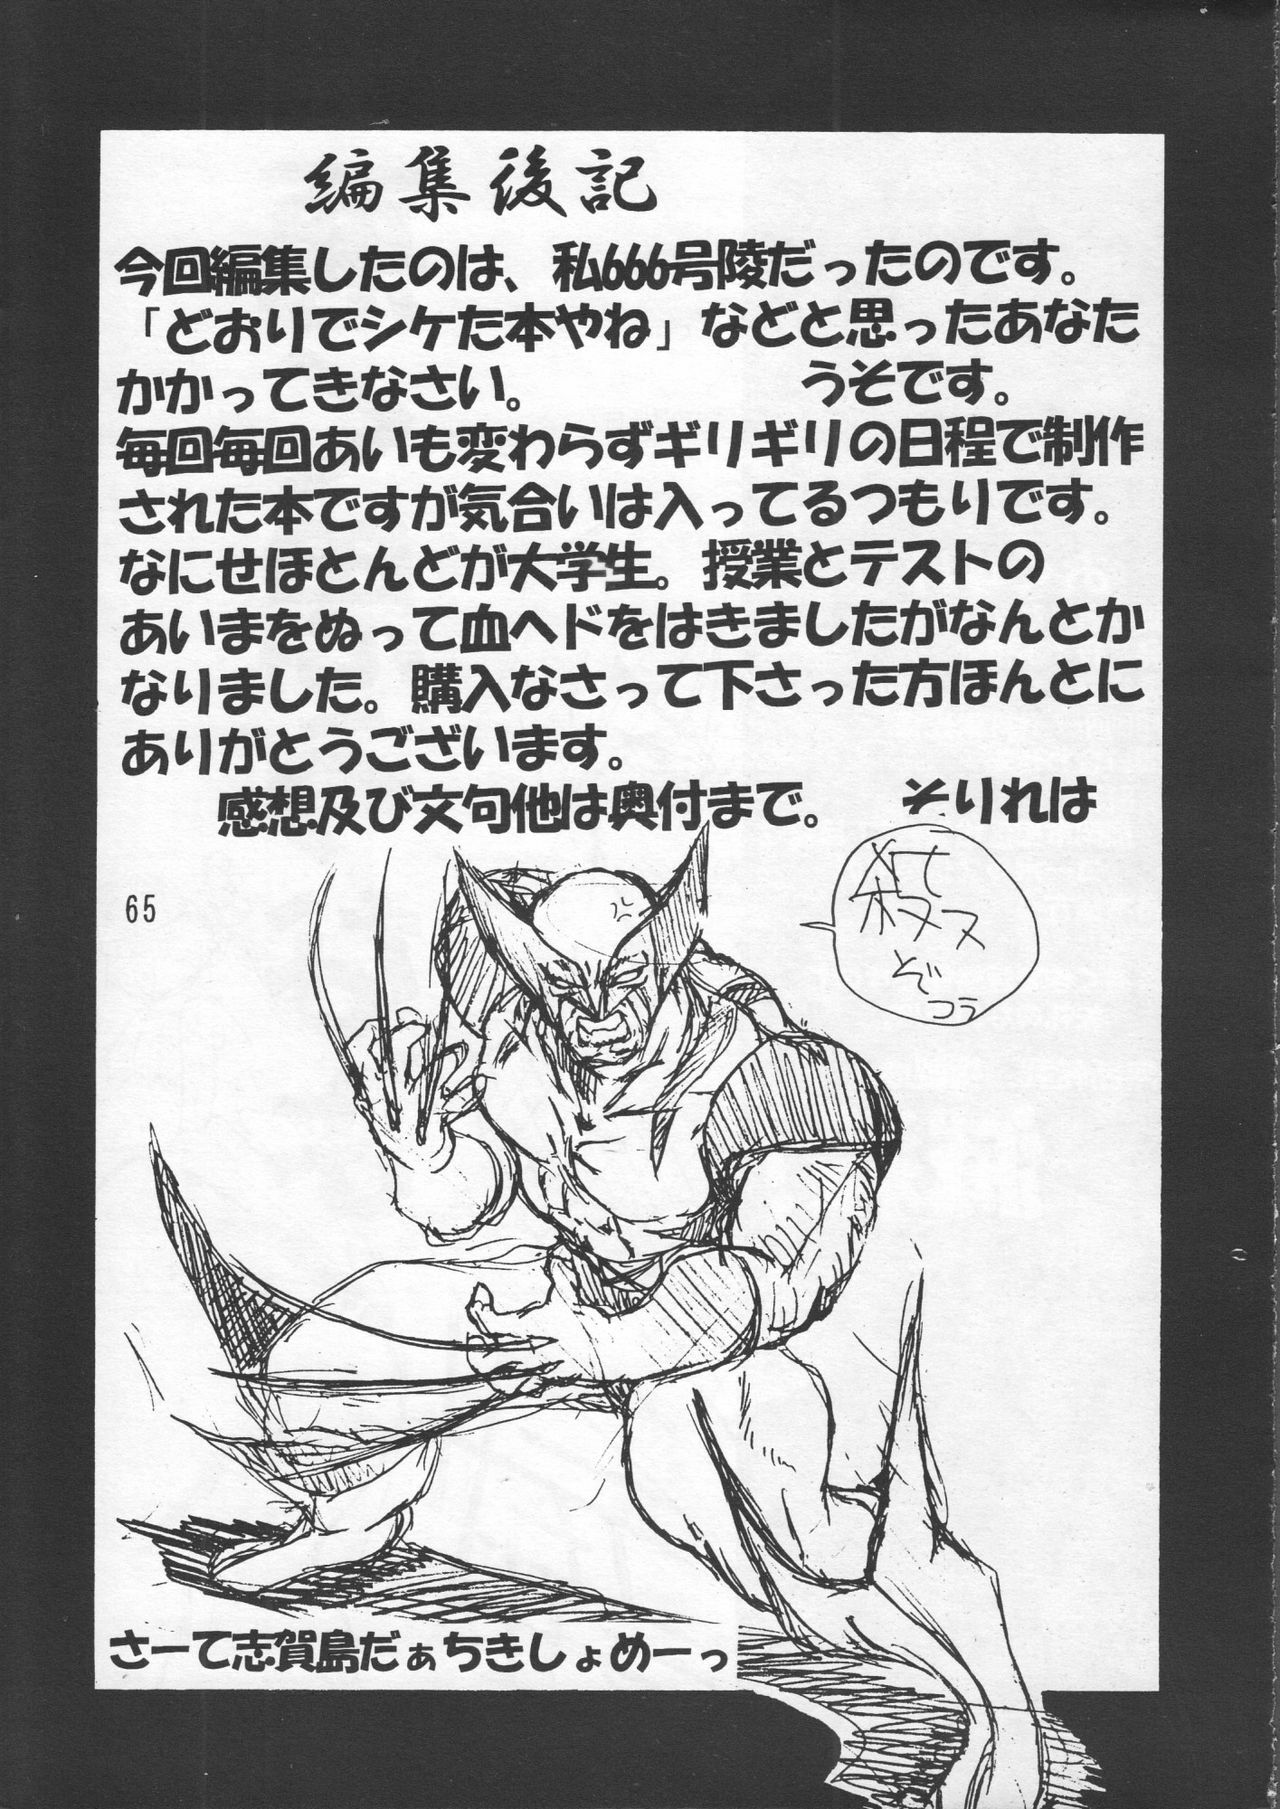 編集後記
今回編集したのは、私666号陵だったのです。
「どおりでシケた本やね」などと思ったあなた
かかってきなさい。　　　　　　うそです。
毎回毎回あいも変わらずギリギリの日程で制作
された本ですが気合いは入ってるつもりです。
なにせほとんどが大学生。授業とテストの
あいまをぬって血ヘドをはきましたがなんとか
なりました。購入なさって下さった方ほんとに
ありがとうございます。
感想及び文句他は奥付まで。　そりれは
ぞ
コラ
65
さーて志賀島だぁちきしょめーっ